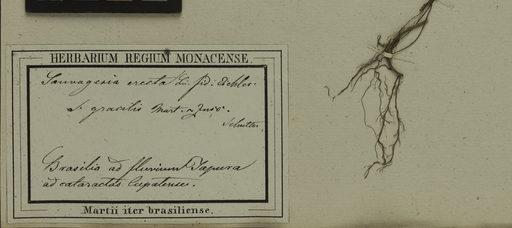 HERBARIUM REGIUM MONACENSE.
Sauvagesia erecta Lin. fid. Eichler.
S. gracilis Mart. & Zucc.
Brasilia ad fluvium Japura
ad cataractas Cupatenses.
Martii iter brasiliense.